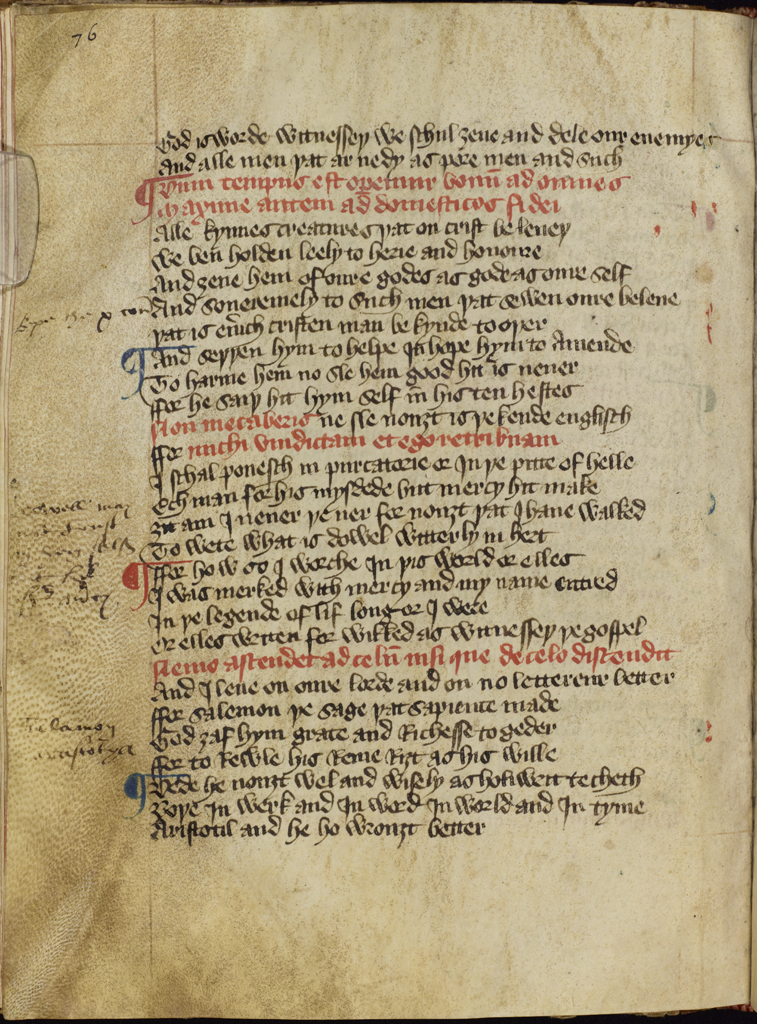 76
God is worde witnessey we schul zeue and dele oure enemyes
And alle men yat ar nedy as pore men and such
Dum tempus est operemur bonū ad omnes
Maxime autem ad domesticos fidei
Alle kynnes creatures yat on crist be leuey
We ben holden leely to herie and honoure
And zeue hem of oure godes as gode as oure self
And souereinely to such men yat sewen oure beleue
yat is euich cristen man be kynde to oyer
And seyyen hym to helpe In hope hym to Amende
To harme hem no sle hem good hit is neuer
ffor he saiy hit hym self in his ten hestes
Non mecaberis ne sle nouzt is ye kende englisch
ffor michi vindictam et ego retribuam
I schal ponesch in purcatorie or In ye pitte of helle
Ech man for his mysdede but mercy hit make
zit am I neuer ye ner for nouzt yat I haue walked
To wete what is dowel witterly in hert
ffor how so I worche In yis world or elles
I was merked with mercy and my name entred
In ye legende of lif longe or I were
Or elles writen for wikked as witnessey ye gospel
Nemo ascendet ad celū nisi que de celo discendit
And I leue on oure lorde and on no lettereur better
ffor Salemon ye sage yat sapience made
God zaf hym grace and Richesse to geder
ffor to Rewle his Reme Rizt as his wille
Dede he nouzt wel and wisely as holi writ techeth
Boye In werk and In word In world and In tyme
Aristotil and he ho wrouzt better